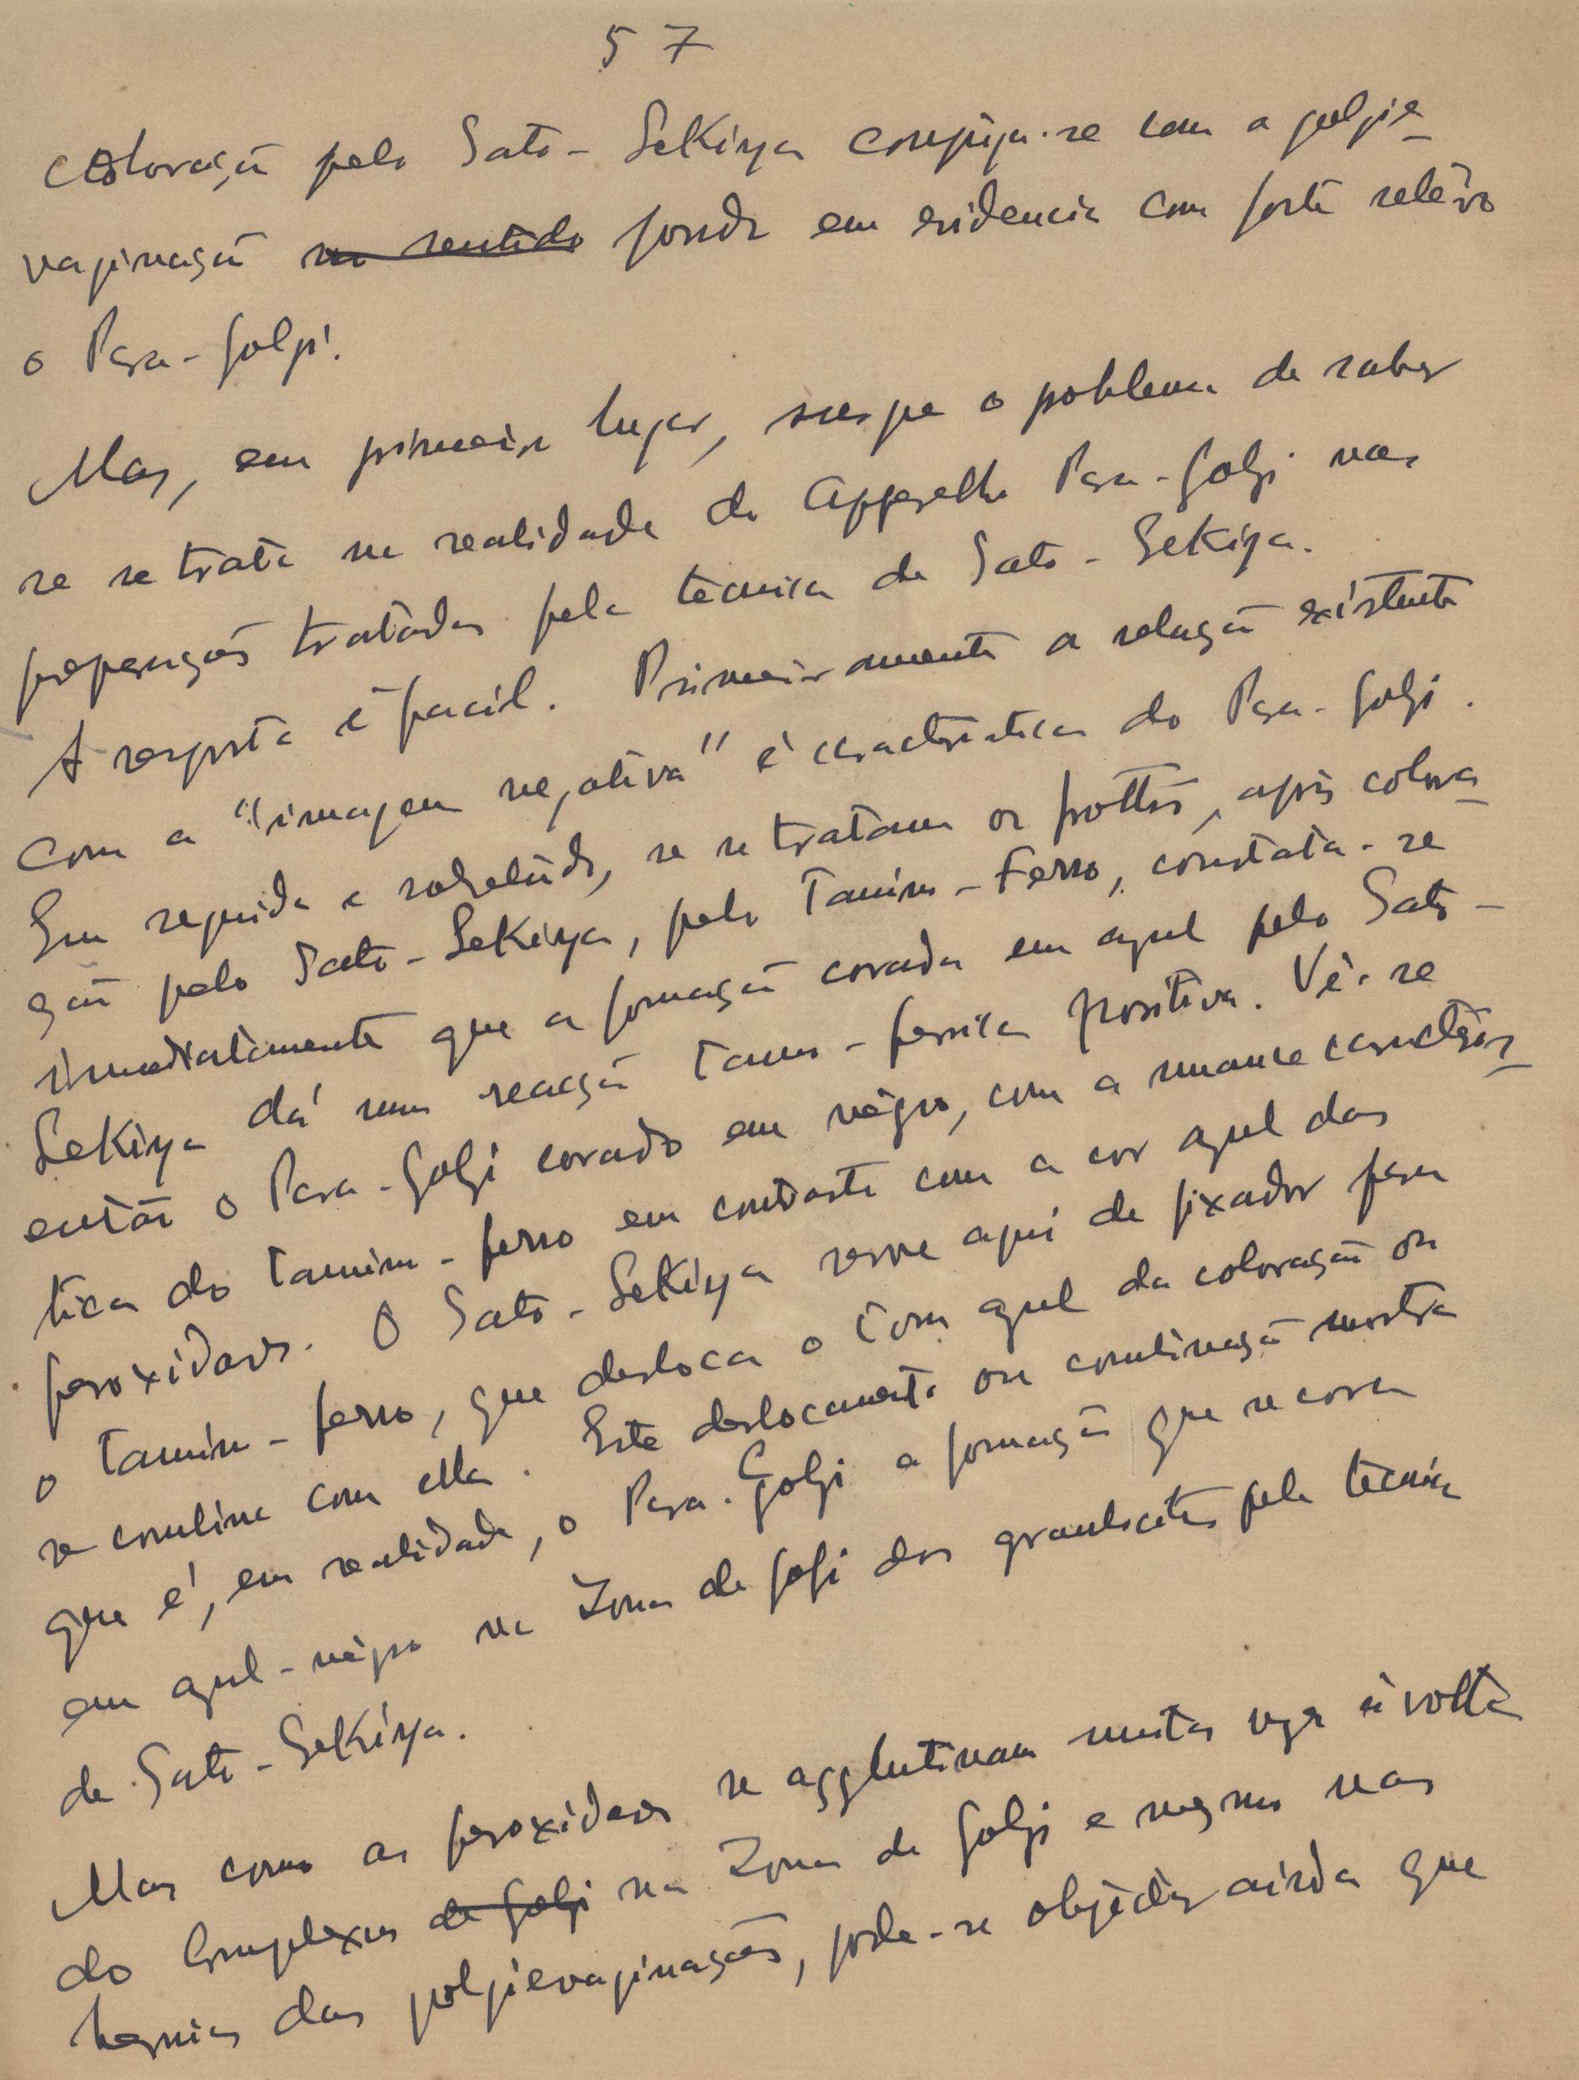 57
coloração pelo Sato - Sekiya conjuga-se com a golgie-
vaginação no sentido pondo em evidencia com forte relêvo
o Para-Golgi.
Mas, em primeiro lugar, surge o problema de saber
se se trata na realidade do Apparelho Para-Golgi nas
preparações tratadas pela tecnica de Sato - Sekiya.
A resposta é facil. Primeiramente a relação existente
com a "imagem negativa" é caracteristica do Para-Golgi.
Em seguida e sobretudo, se se tratam os frottis, após colora-
ção pelo Sato-Sekiya, pelo Tanino-Ferro, constata-se
immediatamente que a formação corada em azul pelo Sato-
Sekiya dá uma reacção tano-ferrica positiva. Vê-se
então o Para-Golgi corado em négro, com a nuance caracterís-
tica do tanino-ferro em contraste com a cor azul das
peroxidases. O Sato-Sekiya serve aqui de fixador para
o tanino-ferro, que desloca o tom azul da coloração ou
se combina com ella. Este deslocamento ou combinação mostra
que é, em realidade, o Para-Golgi a formação que se cora
em azul-négro na Zona de Golgi dos granulocitos pela tecnica
de Sato-Sekiya.
Mas como as peroxidases se agglutinam muitas vezes á volta
do Complexus de Golgi na Zona de Golgi e mesmo nas
hernias das golgievaginações, pode-se objectar ainda que